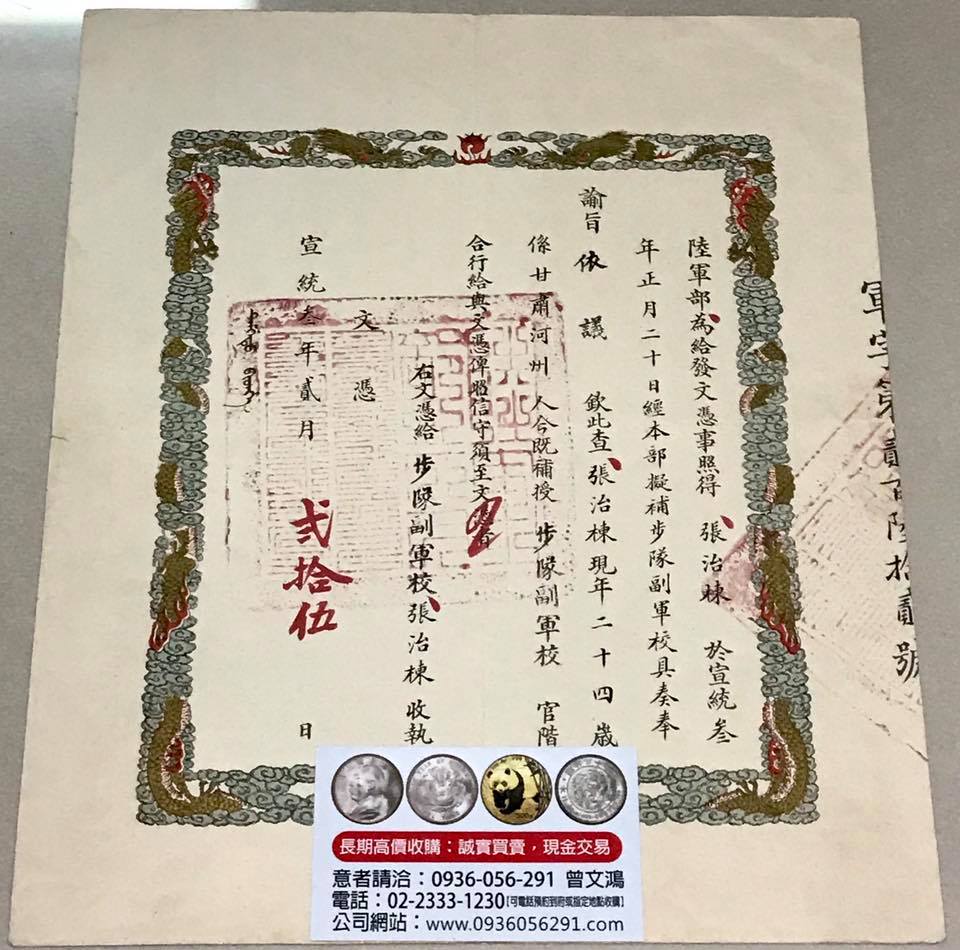 軍字第貳百陸拾貳號
陸軍部為給發文憑事照得張治棟於宣統叁
年正月二十日經本部擬補步隊副軍校具奏奉
諭旨依議欽此查張治棟現年二十四歲
係甘肅河州人今既補授步隊副軍校官階
合行給與文憑俾昭信守須至文憑者
右文憑給步隊副軍校張治棟收執
文憑
宣統叁年貳月弍拾伍日
長期高價收購：誠實買賣，現金交易
意者請洽：0936-056-291 曾文鴻
電話：02-2333-1230【可電話預約到府或指定地點收購】
公司網站：www.0936056291.com